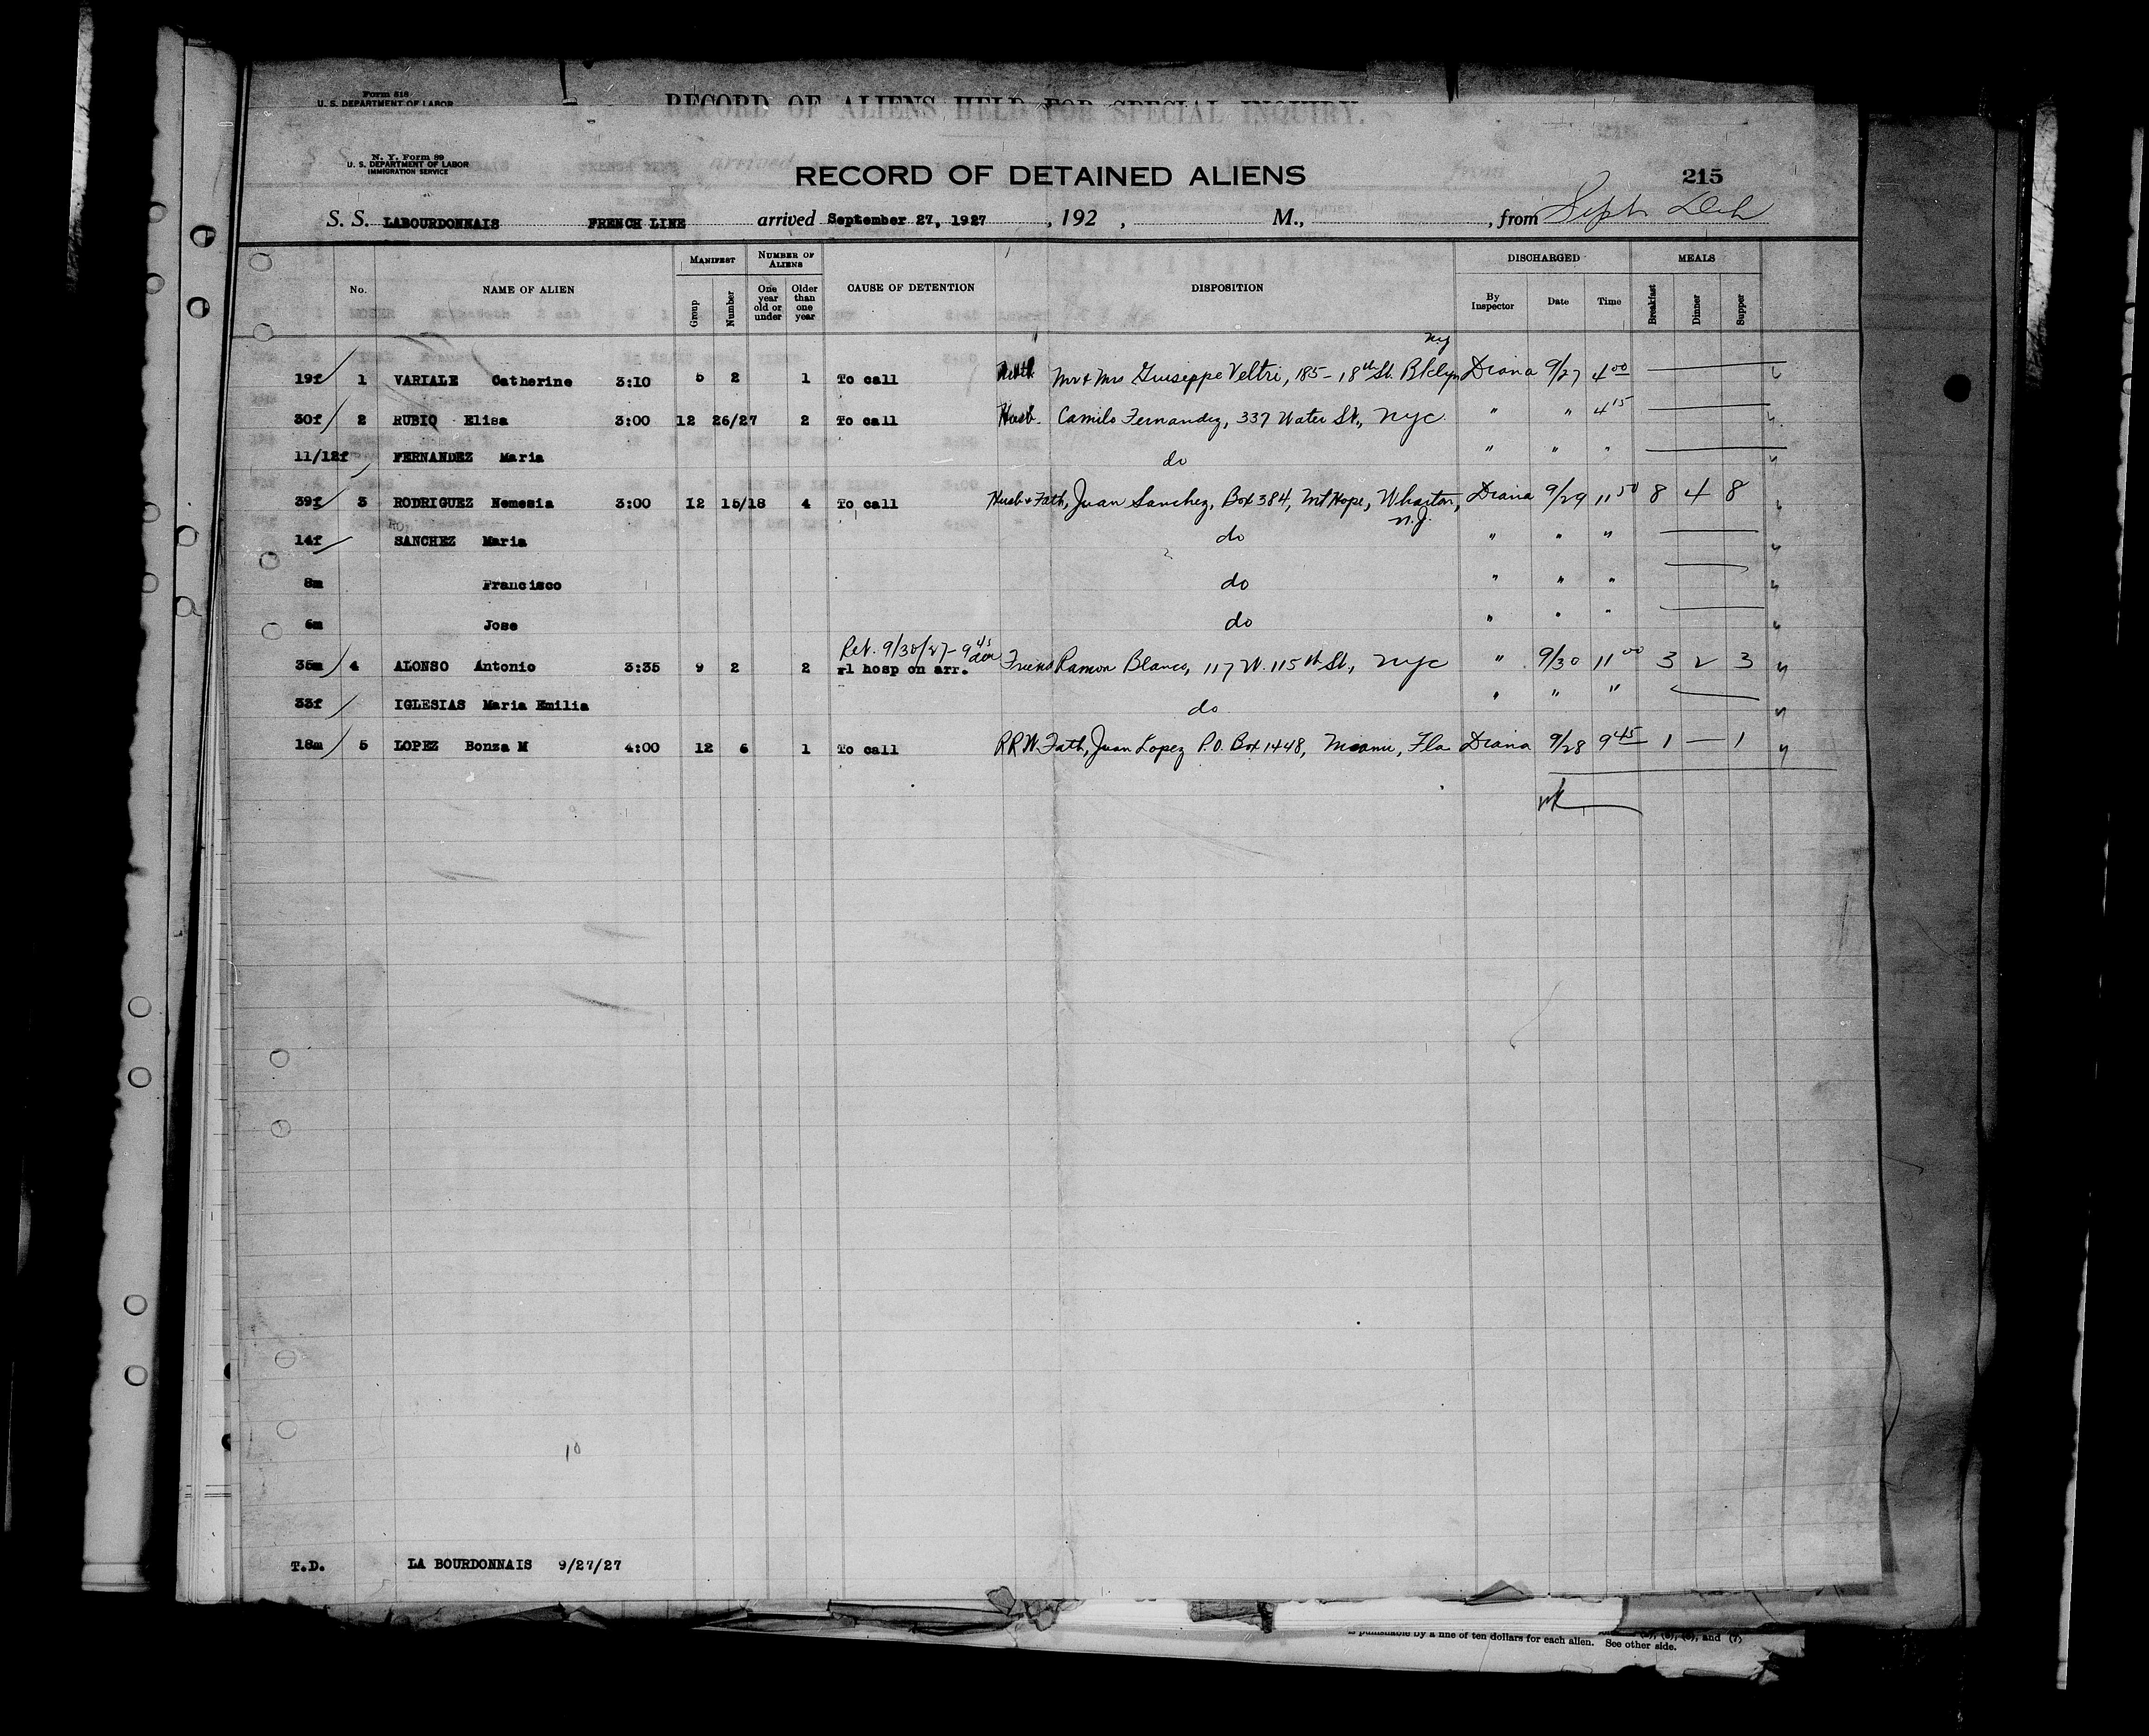 Form 518
U. S. DEPARTMENT OF LABOR
RECORD OF ALIENS HELD FOR SPECIAL INQUIRY.
N. Y. Form 89
U. S. DEPARTMENT OF LABOR
IMMIGRATION SERVICE
RECORD OF DETAINED ALIENS
215
S. S. LABOURDONNAIS FRENCH LINE arrived September 27, 1927, 192 , M., , from Sept
No. NAME OF ALIEN MANIFEST Group Number NUMBER OF ALIENS One year old or under Older than one year CAUSE OF DETENTION DISPOSITION DISCHARGED By Inspector Date Time MEALS Breakfast Dinner Supper
NY
19f 1 VARIALE Catherine 3:10 5 2 1 To call Mr & Mrs Guiseppe Veltri, 185-18th St. Bklyn Diana 9/27 4 00
30f 2 RUBIO Elisa 3:00 12 26/27 2 To call Husb. Camilo Fernandez, 337 Water St., NYC " " 4 15
11/12f FERNANDEZ Maria do " " "
39f 3 RODRIGUEZ Nemesia 3:00 12 15/18 4 To call Husb & Fath, Juan Sanchez, Box 384, Mt Hope, Wharton, N.J. Diana 9/29 11 50 8 4 8
14f SANCHEZ Maria do " " "
8m Francisco do " " "
6m Jose do " " "
Ret. 9/30/27 - 9 45 am
35m 4 ALONSO Antonio 3:35 9 2 2 #1 hosp on arr. Friend Ramon Blanco, 117 W. 115th St., NYC " 9/30 11 00 3 2 3
33f IGLESIAS Maria Emilia do " " "
18m 5 LOPEZ Bonza M 4:00 12 6 1 To call RRW. Fath, Juan Lopez P.O. Box 1448, Miami, Fla Diana 9/28 9 45 1 — 1
10
T.D. LA BOURDONNAIS 9/27/27
is punishable by a fine of ten dollars for each alien. See other side.
and (7)